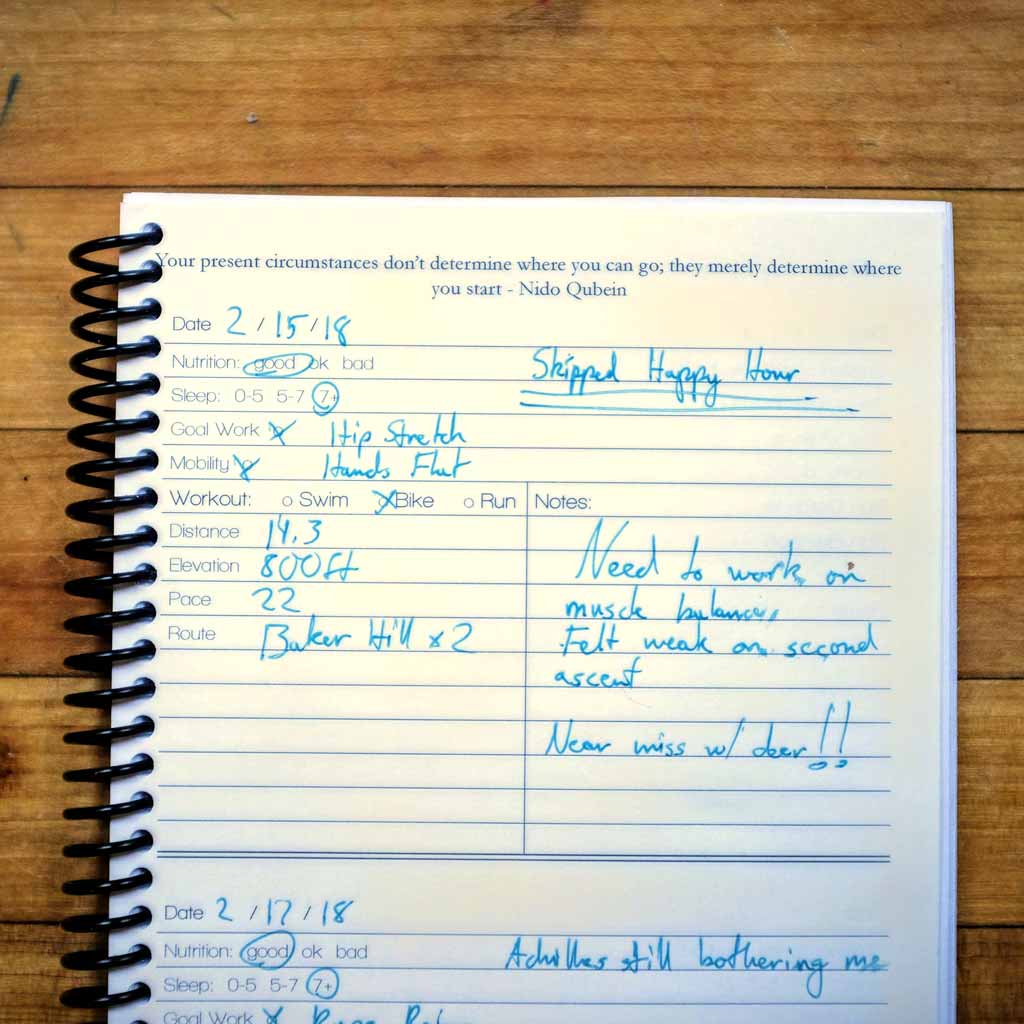 Your present circumstances don't determine where you can go; they merely determine where
you start - Nido Qubein
Date 2 / 15 / 18
Nutrition: good ok bad
Skipped Happy Hour
Sleep: 0-5 5-7 7+
Goal Work Hip Stretch
Mobility Hands Flat
Workout: o Swim Bike o Run
Distance 14.3
Elevation 800ft
Pace 22
Route Baker Hill x 2
Notes:
Need to work on
muscle balance,
Felt weak on second
ascent
Near miss w/ deer!!
Date 2 / 17 / 18
Nutrition: good ok bad
Achilles still bothering me
Sleep: 0-5 5-7 7+
Goal Work